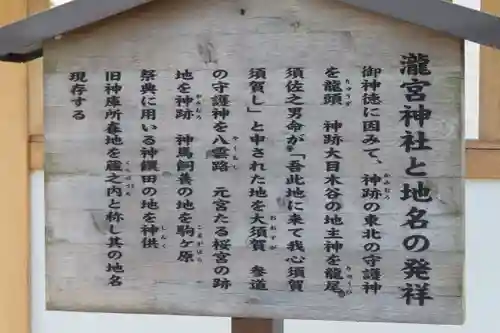 瀧宮神社と地名の発祥
御神徳に因みて、神跡の東北の守護神
を龍頭 神跡大目木谷の地主神を龍尾
須佐之男命が「吾此地に来て我心須賀
須賀し」と申された地を大須賀 参道
の守護神を八雲路 元宮たる桜宮の跡
地を神跡 神馬飼養の地を駒ヶ原
祭典に用いる神饌田の地を神供
旧神庫所在地を蔵之内と称し其の地名
現存する